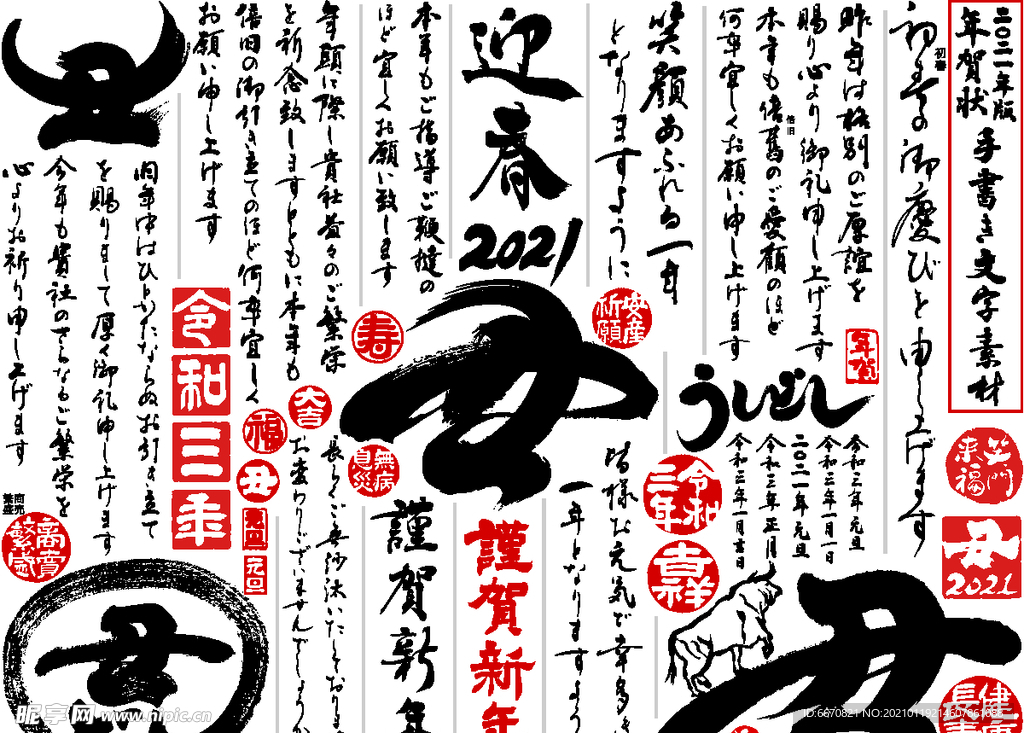 二〇二一年版
年賀状
手書き文字素材
初春の御慶びを申し上げます
初春
昨年は格別のご厚誼を
賜り心より御礼申し上げます
本年も倍舊のご愛顧のほど
倍旧
何卒宜しくお願い申し上げます
年賀
笑門来福
丑
2021
笑顔あふれる一年
となりますように
安産祈願
うしどし
令和三年元旦
令和三年一月一日
二〇二一年元旦
令和三年正月
令和三年一月吉日
令和三年
吉祥
皆様お元気で幸多き
一年となりますよう
迎春
2021
丑
本年もご指導ご鞭撻の
ほど宜しくお願い致します
寿
年頭に際し貴社益々のご繁栄
を祈念致しますとともに本年も
倍旧の御引き立てのほど何卒宜しく
お願い申し上げます
大吉
福
丑
元旦
無病息災
令和三年
丑
旧年中はひとかたならぬお引き立て
を賜りまして厚く御礼申し上げます
今年も貴社のさらなるご繁栄を
心よりお祈り申し上げます
商売繁盛
商売繁盛
長らくご無沙汰いたしており
お変わりございませんでしょうか
謹賀新年
謹賀新年
丑
丑
健康長寿
昵享网 www.nipic.cn
ID:6670821 NO:20210119214607661088